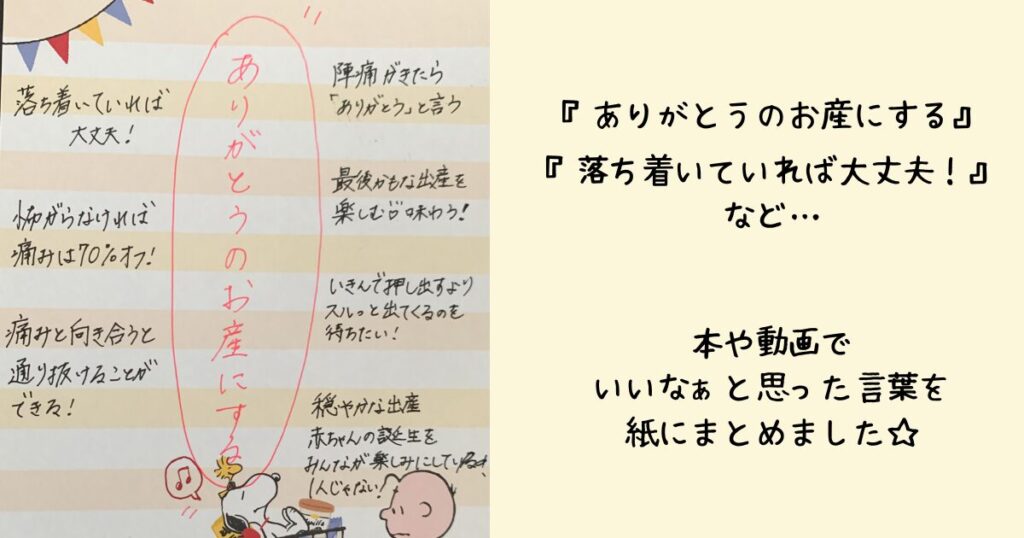 ありがとうのお産にする
陣痛がきたら
「ありがとう」と言う
最後かもな出産を
楽しむ!!味わう!
いきんで押し出すより
スルっと出てくるのを
待ちたい!
穏やかな出産
赤ちゃんの誕生を
みんなが楽しみにしている
1人じゃない!
落ち着いていれば
大丈夫!
怖がらなければ
痛みは70%オフ!
痛みと向き合うと
通り抜けることが
できる!
『ありがとうのお産にする』
『落ち着いていれば大丈夫!』
など…
本や動画で
いいなぁと思った言葉を
紙にまとめました☆